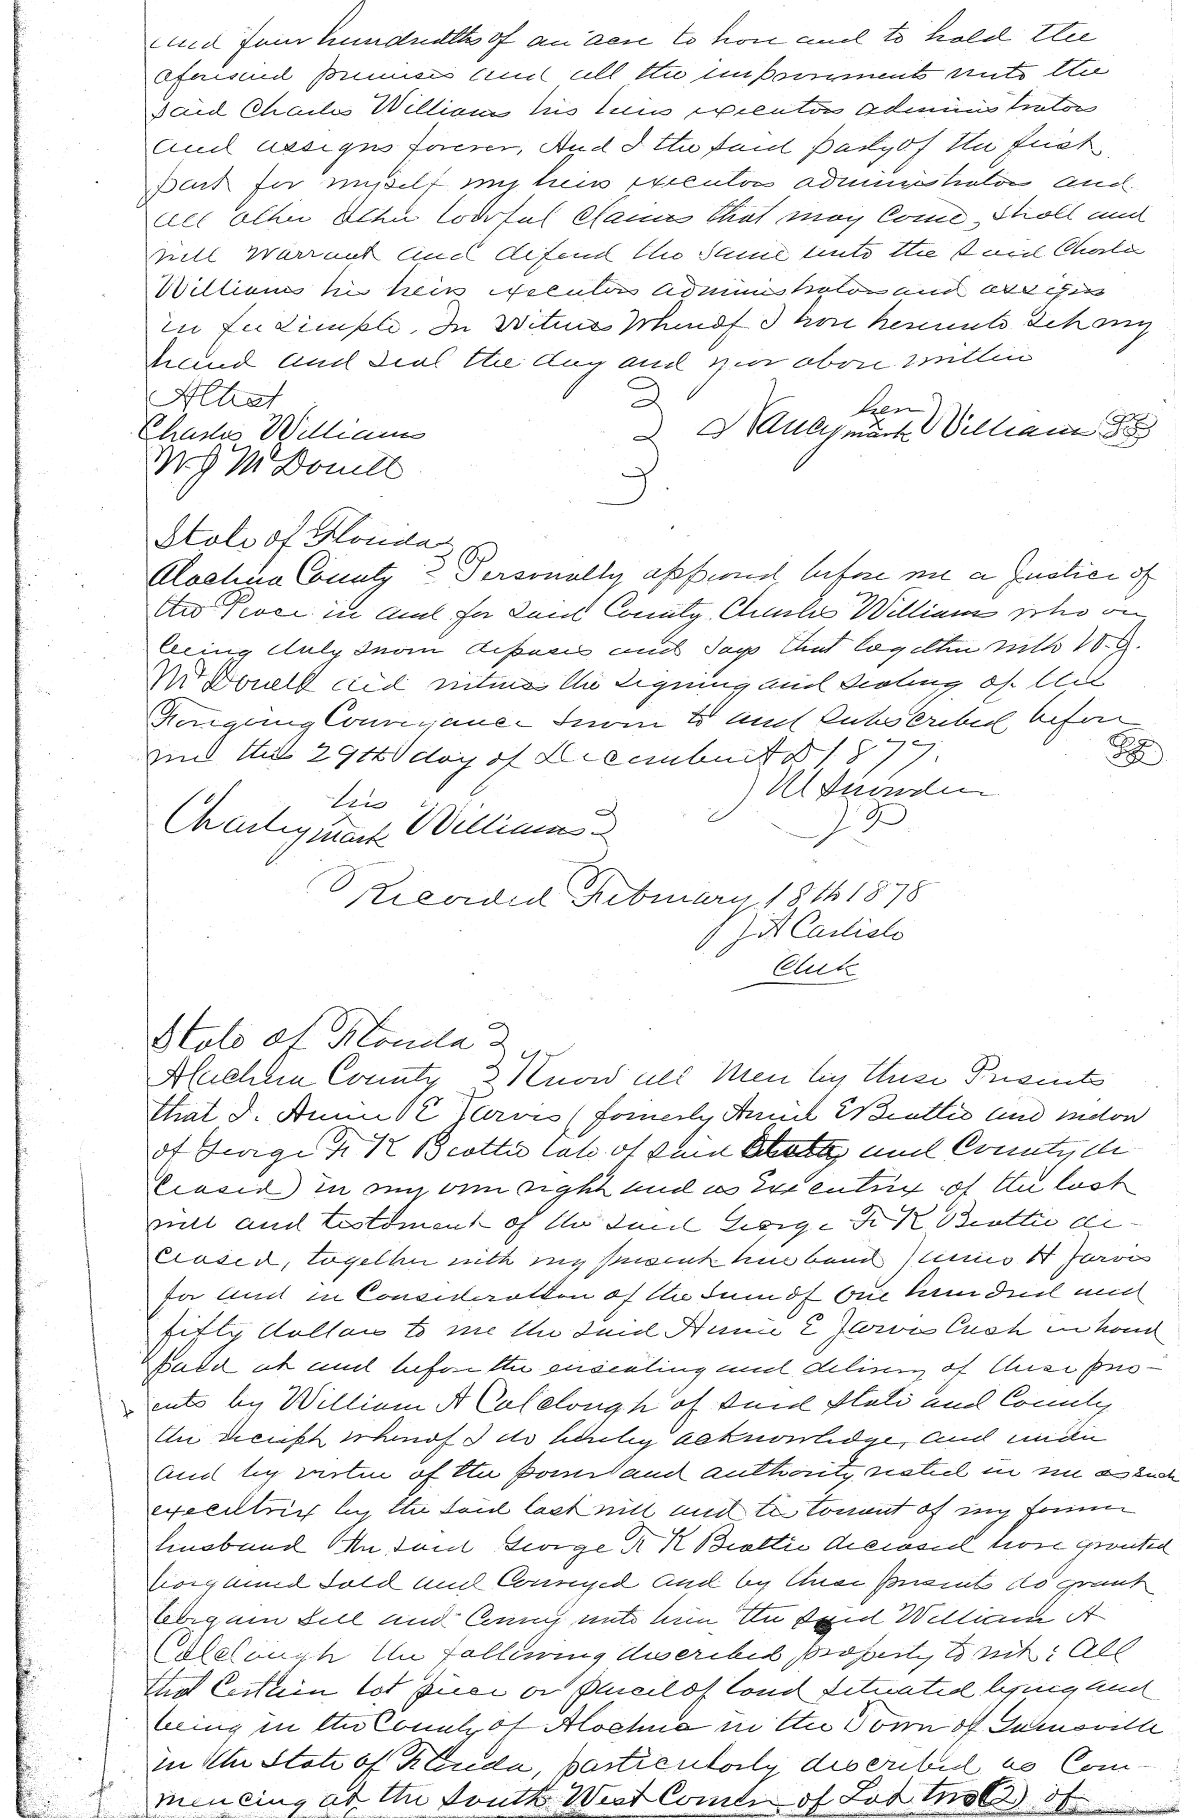 and four hundredths of an acre to have and to hold the
aforesaid premises and all the improvements unto the
said Charles Williams his heirs executors administrators
and assigns forever, And I the said party of the first
part for myself my heirs executors administrators and
all other other lawful claims that may come, shall and
will warrant and defend the same unto the said Charles
Williams his heirs executors administrators and assigns
in fee simple. In Witness Whereof I have hereunto set my
hand and seal the day and year above written
Attest
her
Charles Williams
Nancy mark Williams
W J McDonell
State of Florida
Alachua County Personally appeared before me a Justice of
the Peace in and for said County Charles Williams who on
being duly sworn deposes and says that together with W. J.
McDonell did witness the signing and sealing of the
Foregoing Conveyance sworn to and subscribed before
me this 29th day of December A D 1877.
his
Charley mark Williams
J P
Recorded February 18th 1878
J A Carlisle
Clerk
State of Florida
Alachua County Know all Men by these Presents
that I. Annie E Jarvis (formerly Annie E Beattie and widow
of George F. K Beattie late of said State and County de
ceased) in my own right and as Executrix of the last
will and testament of the said George F. K Beattie de-
ceased, together with my present husband James H Jarvis
for and in Consideration of the sum of One hundred and
fifty dollars to me the said Annie E Jarvis Cash in hand
paid at and before the ensealing and delivery of these pres-
ents by William A Colclough of said State and County
the receipt whereof I do hereby acknowledge, and under
and by virtue of the power and authority vested in me as such
executrix by the said last will and testament of my former
husband the said George F. K Beattie deceased have granted
bargained sold and Conveyed and by these presents do grant
bargain sell and Convey unto him the said William A
Colclough the following described property to wit: All
that Certain lot piece or parcel of land situated lying and
being in the County of Alachua in the Town of Gainesville
in the State of Florida, particularly described as Com-
mencing at the South West Corner of Lot No (2) of